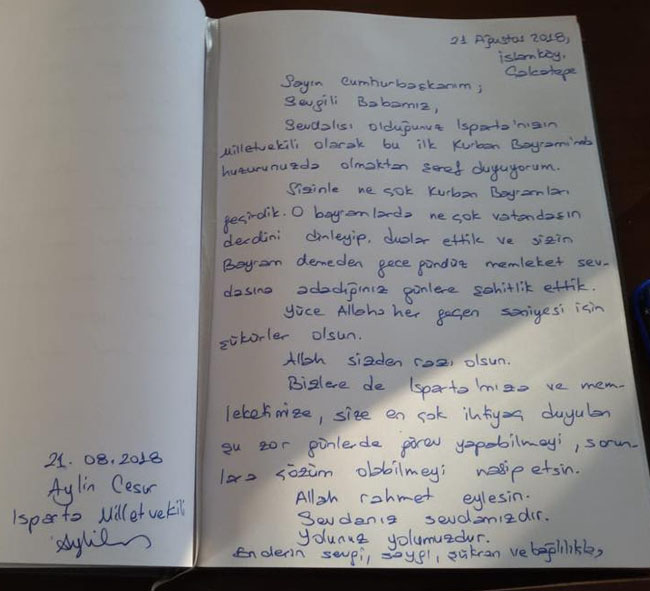 21 Ağustos 2018,
islamköy,
Çalcatepe
Sayın Cumhurbaşkanım;
Sevgili Babamız,
Sevdalısı olduğunuz Isparta'nızın
Milletvekili olarak bu ilk Kurban Bayramı'nda
huzurunuzda olmaktan şeref duyuyorum.
Sizinle ne çok Kurban Bayramları
geçirdik. O bayramlarda ne çok vatandaşın
derdini dinleyip, dualar ettik ve sizin
Bayram demeden gece gündüz memleket sev-
dasına adadığınız günlere şahitlik ettik.
Yüce Allaha her geçen saniyesi için
şükürler olsun.
Allah sizden razı olsun.
Bizlere de Isparta'mıza ve mem-
leketimize, size en çok ihtiyaç duyulan
şu zor günlerde görev yapabilmeyi, sorun-
lara çözüm olabilmeyi nasip etsin.
Allah rahmet eylesin.
Sevdanız sevdamızdır.
Yolunuz yolumuzdur.
En derin sevgi, saygı, şükran ve bağlılıkla,
21. 08. 2018
Aylin Cesur
Isparta Milletvekili